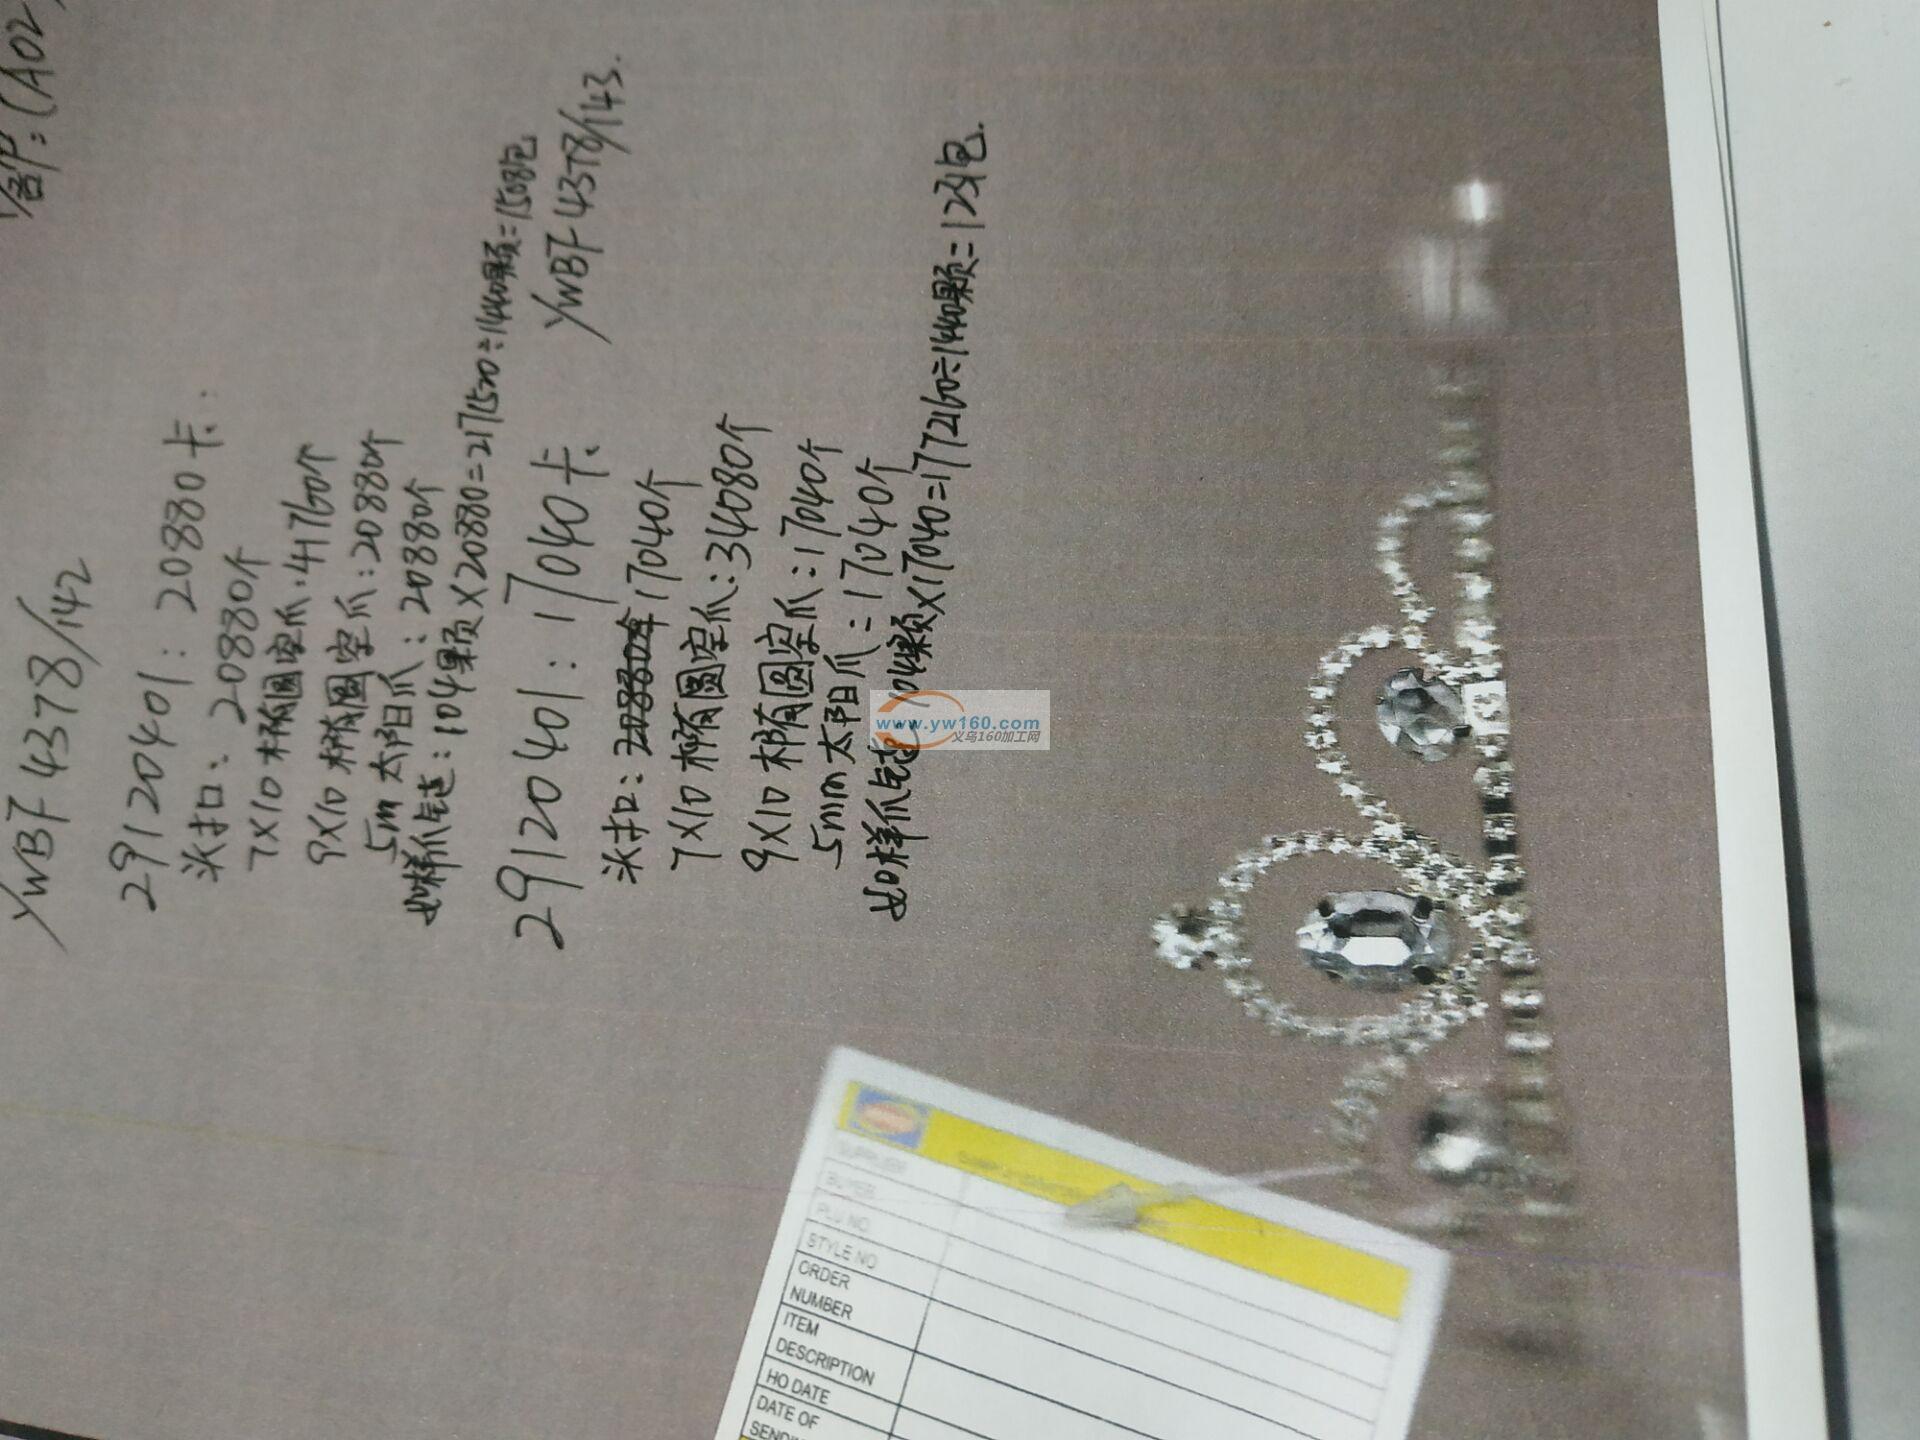 客户:(A02
YWBF4378/142
29120401:20880卡.
头扣:20880个
7X10椭圆空爪:41760个
9X10椭圆空爪:20880个
5m太阳爪:20880个
如样爪链:104颗X20880=2171520÷1440颗=1508包
29120401:17040卡. YWBF4378/143.
头扣:17040个
7X10椭圆空爪:34080个
9X10椭圆空爪:17040个
5mm太阳爪=17040个
如样爪链:104颗X17040=1772160÷1440颗=1231包.
www.yw160.com
义乌160加工网
SUPPLIER
BUYER
PLU NO.
STYLE NO
ORDER
NUMBER
ITEM
DESCRIPTION
HO DATE
DATE OF